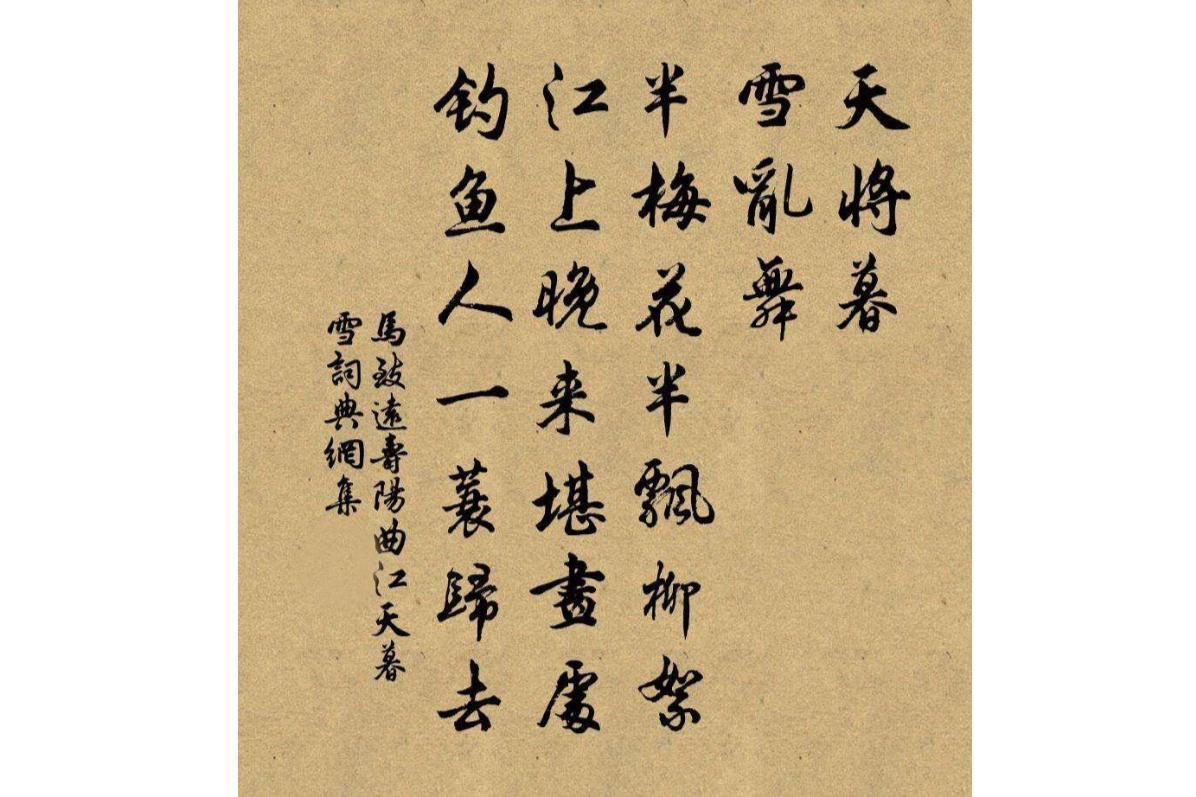 天將暮
雪亂舞
半梅花半飄柳絮
江上晚来堪畫處
钓鱼人一蓑歸去
馬致遠壽陽曲江天暮
雪詞典網集